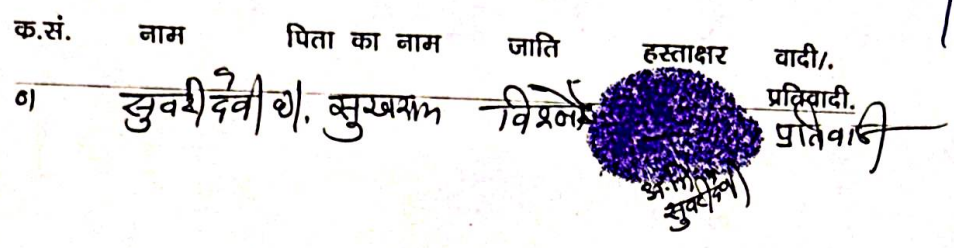 क.सं. नाम पिता का नाम जाति हस्ताक्षर वादी/.
प्रतिवादी.
01 सुवरी देवी w/o. सुखराम विश्नोई प्रतिवादी
अ.नि.
सुवरी देवी